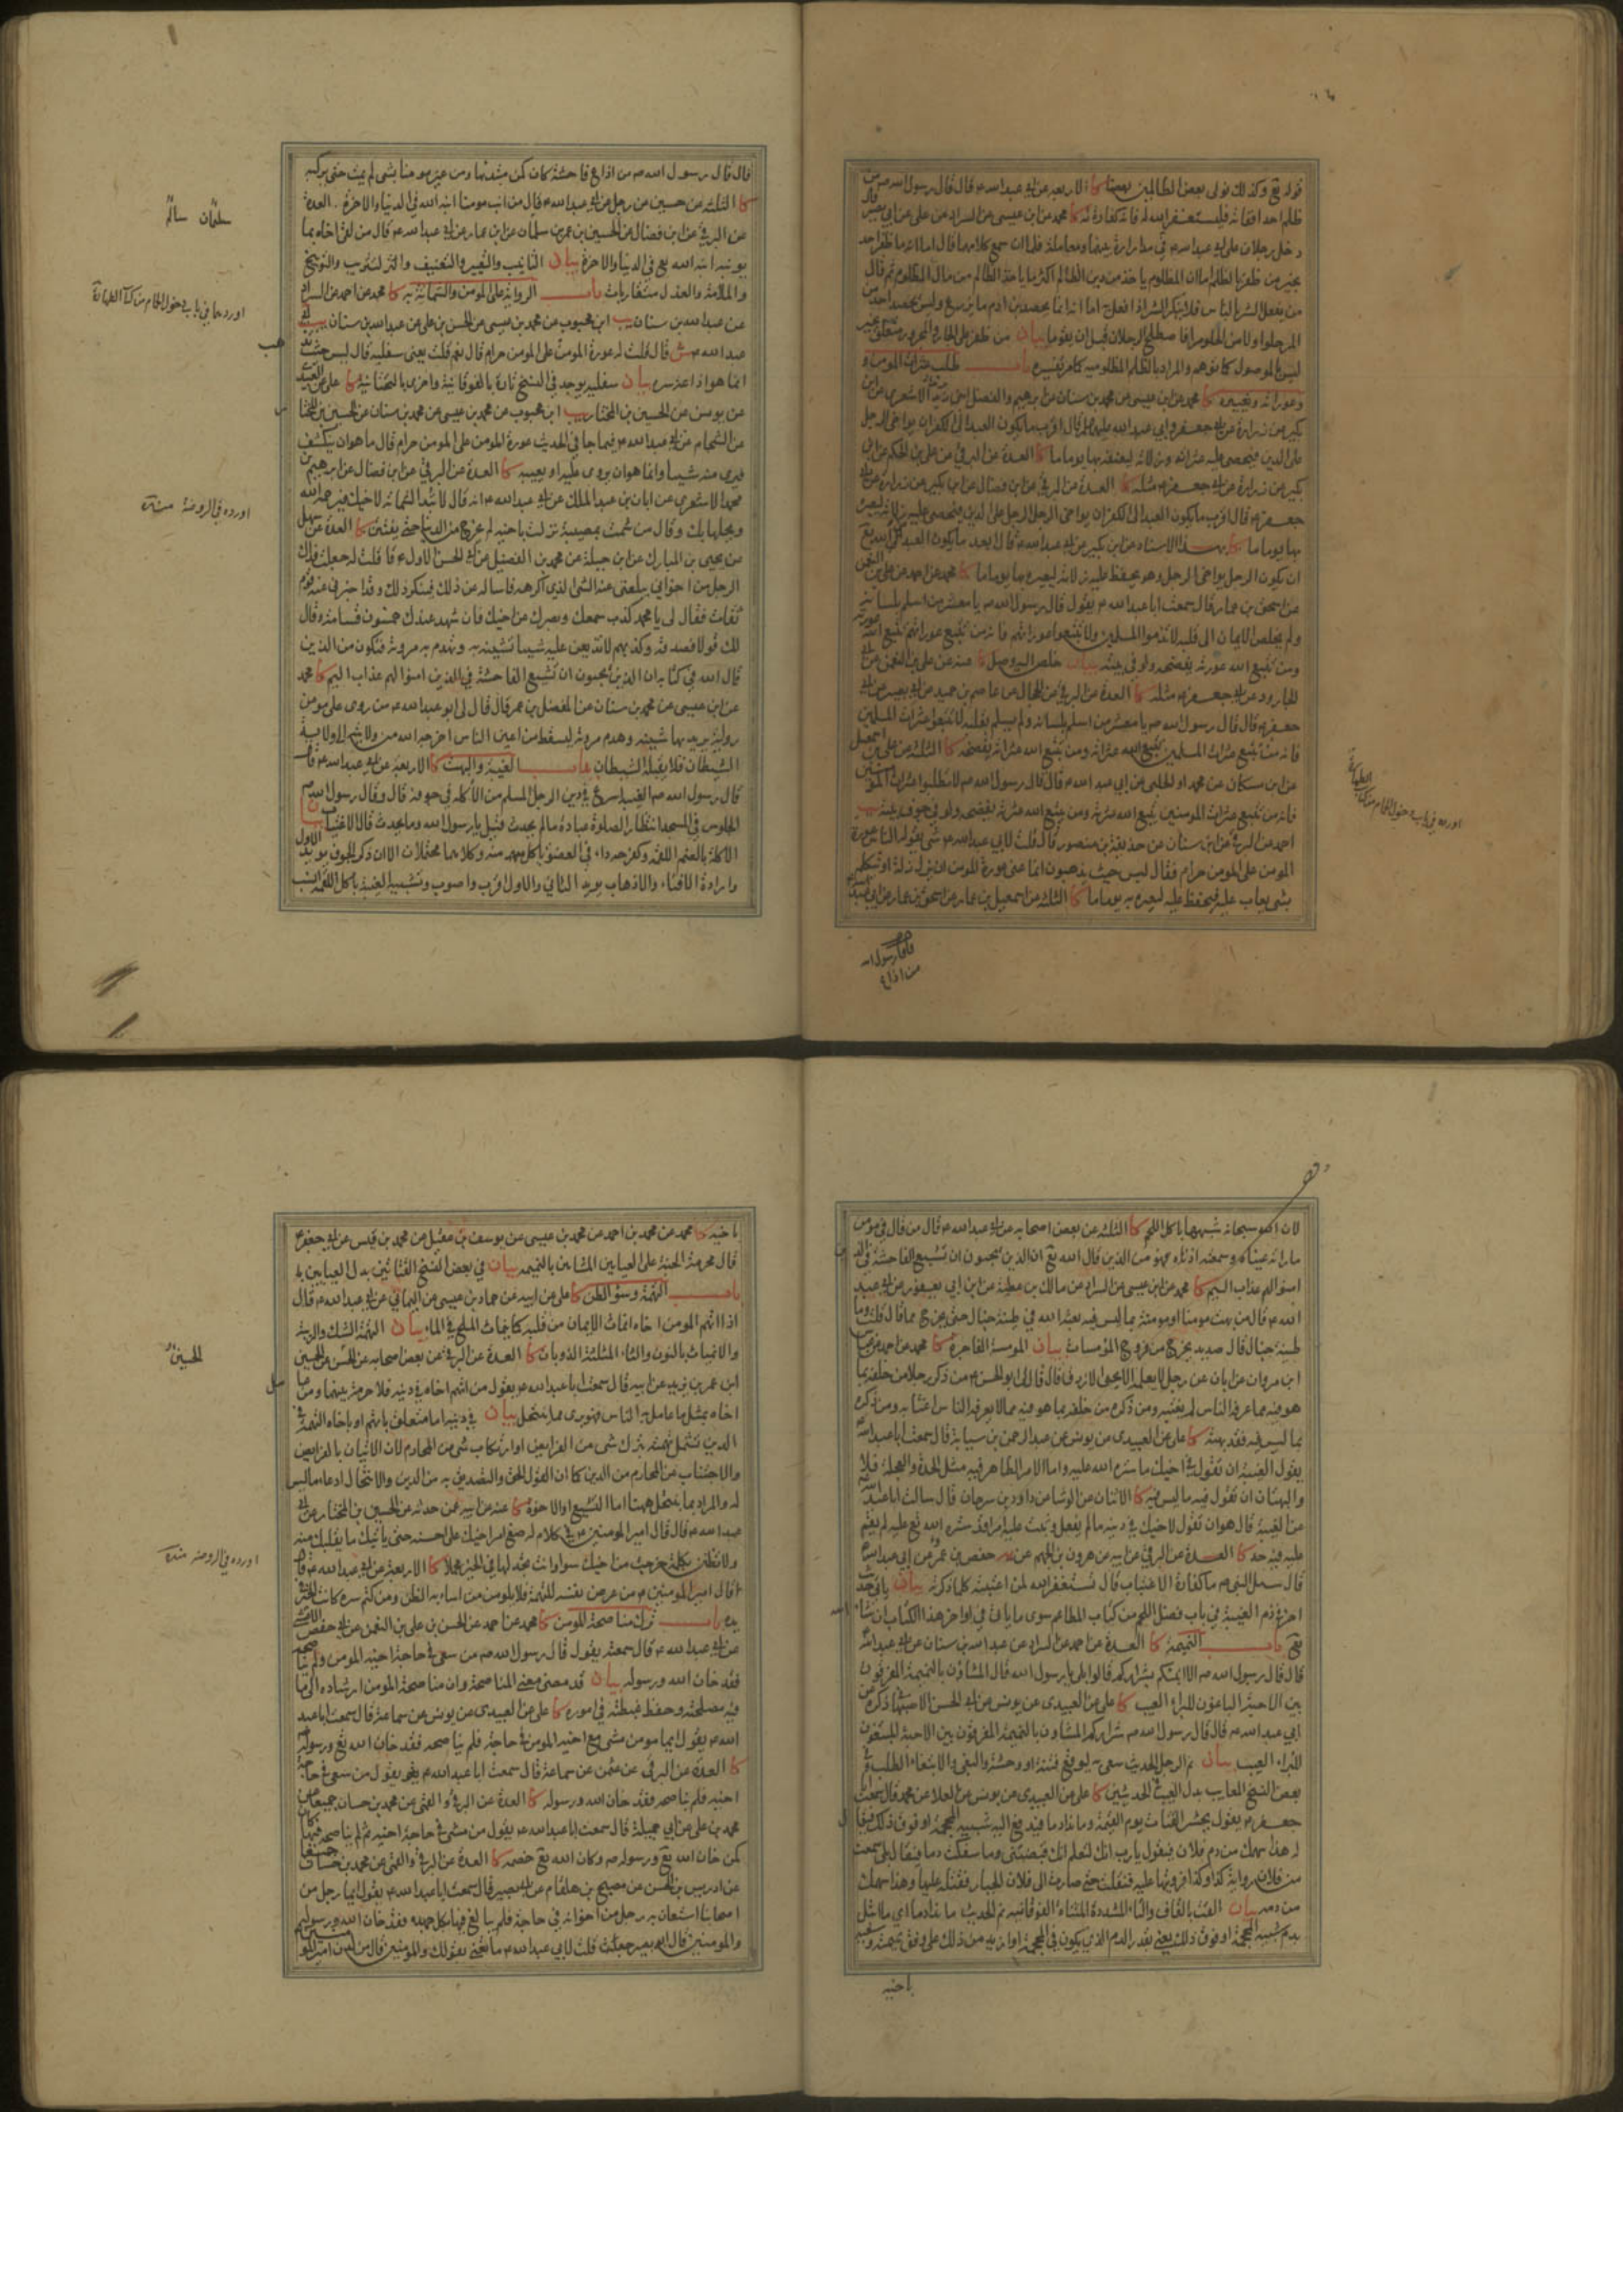 قوله تع وكذلك نولى بعض الظالمين بعضا كا الاربعة عن ابي عبد الله ع قال قال رسول الله ص من
ظلم احدا ففاته فليستغفر الله له فانه كفارة له كا محمد عن ابن عيسى عن السراد عن علي عن ابي بصير قال
دخل رجلان على ابي عبد الله ع في مداراة بينهما ومعاملة فلما ان سمع كلامهما قال اما انه ما ظفر احد
بخير من ظفر بالظلم اما ان المظلوم ياخذ من دين الظالم اكثر مما ياخذ الظالم من مال المظلوم ثم قال
من يفعل الشر بالناس فلا ينكر الشر اذا فعل به اما انه انما يحصد ابن ادم ما يزرع وليس يحصد احد من
المر حلوا ولا من الحلو مرا فاصطلح الرجلان قبل ان يقوما بيان
ليس بالموصول كما توهم والمراد بالظلم المظلومية كما مر تفسيره باب طلب عثرات المومن و
وعوراته وتعييره كا محمد عن ابن عيسى عن محمد بن سنان عن ابرهيم والفضل ابني يزيد الاشعري عن ابن
بكير عن زرارة عن ابي جعفر وابي عبد الله عليهما قال اقرب ما يكون العبد الى الكفر ان يواخي الرجل
على الدين فيحصي عليه عثراته وزلاته ليعنفه بها يوما ما كا العدة عن البرقي عن علي بن الحكم عن ابن
بكير عن زرارة عن ابي جعفر ع مثله كا العدة عن البرقي عن ابن فضال عن ابن بكير عن زرارة عن ابي
جعفر ع قال اقرب ما يكون العبد الى الكفر ان يواخي الرجل الرجل على الدين فيحصي عليه زلاته ليعيره
بها يوما ما كا بهذا الاسناد عن ابن بكير عن ابي عبد الله ع قال ابعد ما يكون العبد من الله تع
ان يكون الرجل يواخي الرجل وهو يحفظ عليه زلاته ليعيره بها يوما ما كا محمد عن احمد عن علي بن النعمن
عن اسحق بن عمار قال سمعت ابا عبد الله ع يقول قال رسول الله ص يا معشر من اسلم بلسانه
ولم يخلص الايمان الى قلبه لا تذموا المسلمين ولا تتبعوا عوراتهم فانه من تتبع عوراتهم تتبع الله عورته
ومن تتبع الله عورته يفضحه ولو في بيته بيان خلص اليه وصل كا عنه عن علي بن النعمن عن ابي
الجارود عن ابي جعفر ع مثله كا العدة عن البرقي عن الحجال عن عاصم بن حميد عن ابي بصير عن ابي
جعفر ع قال قال رسول الله ص يا معشر من اسلم بلسانه ولم يسلم بقلبه لا تتبعوا عثرات المسلمين
فانه من تتبع عثرات المسلمين تتبع الله عثراته ومن تتبع الله عثراته يفضحه كا الثلثة عن علي بن اسمعيل
عن ابن مسكان عن محمد او الحلبي عن ابي عبد الله ع قال قال رسول الله ص لا تطلبوا عثرات المؤمنين
فانه من تتبع عثرات المومنين تتبع الله عثرته ومن يتبع الله عثرته يفضحه ولو في جوف بيته يب
احمد عن البرقي عن ابن سنان عن حذيفة بن منصور قال قلت لابي عبد الله ع شئ يقوله الناس عورة
المومن على المومن حرام فقال ليس حيث يذهبون انما عنى عورة المومن ان يزل زلة او يتكلم
بشئ يعاب عليه فيحفظ عليه ليعيره به يوما ما كا الثلثة عن اسمعيل بن عمار عن اسحق بن عمار عن ابي عبد الله
قال قال رسول الله
من اذاع
قال قال رسول الله ص من اذاع فاحشة كان كمن مبتدئها ومن عير مومنا بشئ لم يمت حتى يركبه
كا الثلثة عن حسين عن رجل عن ابي عبد الله ع قال من انب مومنا انبه الله في الدنيا والاخرة العدة
عن البرقي عن ابن فضال عن الحسين بن عمر بن سلمان عن ابن عمار عن ابي عبد الله ع قال من لقى اخاه بما
يونبه انبه الله تع في الدنيا والاخرة بيان التانيب والتعيير والتعنيف والتثريب والتوبيخ
والملامة والعذل متقاربات باب الرواية على المومن والشماتة به كا محمد عن احمد عن السراد
عن عبد الله بن سنان يب ابن محبوب عن محمد بن عيسى عن الحسن بن علي عن عبد الله بن سنان
عبد الله ع ش قال قلت له عورة المومن على المومن حرام قال نعم قلت يعني سفليه قال ليس حيث تذهب
انما هو اذاعة سره بيان سفليه يوجد في النسخ تارة بالفوقانية واخرى بالتحتانية كا علي عن العبيدي
عن يونس عن الحسين بن المختار يب ابن محبوب عن محمد بن عيسى عن محمد بن سنان عن الحسين بن المختار
عن الشحام عن ابي عبد الله ع فيما جا في الحديث عورة المومن على المومن حرام قال ما هو ان ينكشف
فيرى منه شيئا وانما هو ان يروى عليه او يعيبه كا العدة عن البرقي عن ابن فضال عن ابرهيم بن
محمد الاشعري عن ابان بن عبد الملك عن ابي عبد الله ع انه قال لا تبد الشماتة لاخيك فيرحمه الله
ويحلها بك وقال من شمت بمصيبة نزلت باخيه لم يخرج من الدنيا حتى يفتتن كا العدة عن سهل
عن يحيى بن المبارك عن ابن جبلة عن محمد بن الفضيل عن ابي الحسن الاول ع قال قلت له جعلت فداك
الرجل من اخواني يبلغني عنه الشئ الذي اكرهه فاساله عن ذلك فينكر ذلك وقد اخبرني عنه قوم
ثقات فقال لي يا محمد كذب سمعك وبصرك عن اخيك فان شهد عندك خمسون قسامة وقال
لك قولا فصدقه وكذبهم لا تذيعن عليه شيئا تشينه به وتهدم به مروته فتكون من الذين
قال الله في كتابه ان الذين يحبون ان تشيع الفاحشة في الذين امنوا لهم عذاب اليم كا محمد
عن ابن عيسى عن محمد بن سنان عن المفضل بن عمر قال قال لي ابو عبد الله ع من روى على مومن
رواية يريد بها شينه وهدم مروته ليسقط من اعين الناس اخرجه الله من ولايته الى ولاية
الشيطان فلا يقبله الشيطان باب الغيبة والبهت كا الاربعة عن ابي عبد الله ع قال
قال رسول الله ص الغيبة اسرع في دين الرجل المسلم من الاكلة في جوفه قال وقال رسول الله ص
الجلوس في المسجد انتظار الصلوة عبادة ما لم يحدث قيل يا رسول الله وما يحدث قال الاغتياب بيان
الاكلة بالضم اللقمة وكفرحة داء في العضو ياكل منه وكلاهما محتملان الا ان ذكر الجوف يويد الاول
وارادة الافناء والاذهاب يويد الثاني والاول اقرب واصوب وتشبيه الغيبة باكل اللقمة انسب
سلمان سالم
اوردهما في باب دخول الحمام من كتاب الطهارة
اورده في الروضة منه
اورده في باب دخول الحمام من كتاب الطهارة
لان الله سبحانه شبهها باكل اللحم كا الثلثة عن بعض اصحابه عن ابي عبد الله ع قال من قال في مومن
ما راته عيناه وسمعته اذناه فهو من الذين قال الله تع ان الذين يحبون ان تشيع الفاحشة في الذين
امنوا لهم عذاب اليم كا محمد عن ابن عيسى عن السراد عن مالك بن عطية عن ابن ابي يعفور عن ابي عبد
الله ع قال من بهت مومنا او مومنة بما ليس فيه بعثه الله في طينة خبال حتى يخرج مما قال قلت وما
طينة خبال قال صديد يخرج من فروج المومسات بيان المومسة الفاجرة كا محمد عن احمد عن
ابن مروان عن ابان عن رجل لا يعلمه الا يحيى الازرق قال قال لي ابو الحسن ع من ذكر رجلا من خلفه بما
هو فيه مما عرفه الناس لم يغتبه ومن ذكره من خلفه بما هو فيه مما لا يعرفه الناس اغتابه ومن ذكره
بما ليس فيه فقد بهته كا علي عن العبيدي عن يونس عن عبد الرحمن بن سيابة قال سمعت ابا عبد الله
يقول الغيبة ان تقول في اخيك ما ستره الله عليه واما الامر الظاهر فيه مثل الحدة والعجلة فلا
والبهتان ان تقول فيه ما ليس فيه كا الاثنان عن الوشا عن داود بن سرحان قال سالت ابا عبد الله
عن الغيبة قال هو ان تقول لاخيك في دينه ما لم يفعل وتبث عليه امرا قد ستره الله تع عليه لم يقم
عليه فيه حد كا العدة عن البرقي عن ابيه عن هرون بن الجهم عن حفص بن عمر عن ابي عبد الله
قال سئل النبي ص ما كفارة الاغتياب قال تستغفر الله لمن اغتبته كلما ذكرته بيان ياتي حديث
اخر في ذم الغيبة في باب فضل اللحم من كتاب المطاعم سوى ما ياتي في اواخر هذا الكتاب ان شا الله
تع باب النميمة كا العدة عن احمد عن السراد عن عبد الله بن سنان عن ابي عبد الله
قال قال رسول الله ص الا انبئكم بشراركم قالوا بلى يا رسول الله قال المشاؤن بالنميمة المفرقون
بين الاحبة الباغون للبراء العيب كا علي عن العبيدي عن يونس عن ابي الحسن الاصبهاني ذكره عن
ابي عبد الله ع قال قال رسول الله ص شراركم المشاؤن بالنميمة المفرقون بين الاحبة المبتغون
للبراء العيب بيان نم الرجل الحديث سعى به ليوقع فتنة او وحشة والبغي والابتغاء الطلب وفي
بعض النسخ المعايب بدل العيب في الحديثين كا علي عن العبيدي عن يونس عن العلا عن محمد قال سمعت
جعفر ع يقول يحشر العبد يوم القيمة وما ندا دما فيدفع اليه شبيه المحجمة او فوق ذلك فيقال
له هذا سهمك من دم فلان فيقول يا رب انك لتعلم انك قبضتني وما سفكت دما فيقال بلى سمعت
من فلان رواية كذا وكذا فرويتها عليه فنقلت حتى صارت الى فلان الجبار فقتله عليها وهذا سهمك
من دمه بيان القت بالقاف والتاء المشددة المثناة الفوقانية نم الحديث ما ندا دما اي ما ابتل
بدم شبيه المحجمة او فوق ذلك يعني بقدر الدم الذي يكون في المحجمة او ازيد من ذلك على وفق نميمته
باخيه
باخيه كا محمد عن محمد بن احمد عن محمد بن عيسى عن يوسف بن عقيل عن محمد بن قيس عن ابي جعفر ع
قال محرمة الجنة على العيابين المشائين بالنميمة بيان في بعض النسخ القتاتين بدل العيابين
باب التهمة وسوء الظن كا علي عن ابيه عن حماد بن عيسى عن اليماني عن ابي عبد الله ع قال
اذا اتهم المومن اخاه انماث الايمان من قلبه كما ينماث الملح في الماء بيان التهمة الشك والريبة
والانمياث بالنون والثاء المثلثة الذوبان كا العدة عن البرقي عن بعض اصحابه عن الحسن عن الحسين
ابن عمر بن يزيد عن ابيه قال سمعت ابا عبد الله ع يقول من اتهم اخاه في دينه فلا حرمة بينهما ومن عامل
اخاه بمثل ما عامل به الناس فهو برى مما ينتحل بيان في دينه اما متعلق باتهم او باخاه التهمة في
الدين تشمل تهمته بترك شئ من الفرايض او ارتكاب شئ من المحارم لان الاتيان بالفرايض
والاجتناب من المحارم من الدين كما ان القول الحق والتصديق به من الدين والانتحال ادعاء ما ليس
له والمراد بما ينتحل هيهنا اما التشيع او الاخوة كا عنه عن ابيه عمن حدثه عن الحسين بن المختار عن ابي
عبد الله ع قال قال امير المومنين ع في كلام له ضع امر اخيك على احسنه حتى ياتيك ما يغلبك منه
ولا تظنن بكلمة خرجت من اخيك سوءا وانت تجد لها في الخير محملا كا الاربعة عن ابي عبد الله ع قال
قال امير المومنين ع من عرض نفسه للتهمة فلا يلومن من اساء به الظن ومن كتم سره كانت الخيرة
بيده باب ترك مناصحة المومن كا محمد عن احمد عن الحسن بن علي بن النعمن عن ابي حفص الاعشى
عن ابي عبد الله ع قال سمعته يقول قال رسول الله ص من سعى في حاجة اخيه المومن ولم يناصحه
فقد خان الله ورسوله بيان قد مضى معنى المناصحة وان مناصحة المومن ارشاده الى ما
فيه مصلحته وحفظ غبطته في اموره كا علي عن العبيدي عن يونس عن سماعة قال سمعت ابا عبد
الله ع يقول ايما مومن مشى مع اخيه المومن في حاجة فلم يناصحه فقد خان الله تع ورسوله
كا العدة عن البرقي عن عثمن عن سماعة قال سمعت ابا عبد الله ع يقول من سعى في حاجة
اخيه فلم يناصحه فقد خان الله ورسوله كا العدة عن البرقي والقمي عن محمد بن حسان جميعا عن
محمد بن علي عن ابي جميلة قال سمعت ابا عبد الله ع يقول من مشى في حاجة اخيه ثم لم يناصحه فيها كان
كمن خان الله تع ورسوله ص وكان الله تع خصمه كا العدة عن البرقي والقمي عن محمد بن حسان جميعا
عن ادريس بن الحسن عن مصبح بن هلقام عن ابي بصير قال سمعت ابا عبد الله ع يقول ايما رجل من
اصحابنا استعان به رجل من اخوانه في حاجة فلم يبالغ فيها بكل جهده فقد خان الله ورسوله
والمومنين قال ابو بصير قلت لابي عبد الله ع ما تعني بقولك والمومنين قال من لدن امير المومنين
الحسين
اورده في الروضة منه